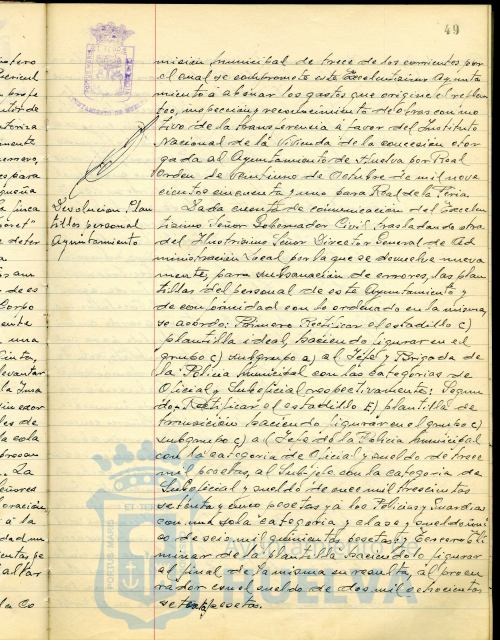 49
misión municipal de trece de los corrientes por
el cual se compromete este Excelentísimo Ayunta
miento á abonar los gastos que origine el replan
teo, inspección y reconocimiento de obras con mo
tivo de la transferencia á favor del Instituto
Nacional de la Vivienda de la concesión otor
gada al Ayuntamiento de Huelva por Real
Orden de veintiuno de Octubre de mil nove
cientos cincuenta y uno para Real de la Feria
Devolucion Plan
tillas personal
Ayuntamiento
Dada cuenta de comunicación del Excelen
tísimo Señor Gobernador Civil trasladando otra
del Ilustrísimo Señor Director General de Ad
ministración Local por la que se devuelve nueva
mente, para subsanación de errores, las plan
tillas del personal de este Ayuntamiento y
de conformidad con lo ordenado en la misma,
se acordó: Primero Rectificar el estadillo C)
plantilla ideal, haciendo figurar en el
grupo C) subgrupo a) al Jefe y Brigada de
la Policia Municipal con las categorias de
Oficial y Suboficial respectivamente; Segun
do, Rectificar el estadillo E) plantilla de
transición haciendo figurar en el grupo C)
subgrupo C) al Jefe de la Policia Municipal
con la categoria de Oficial y sueldo de trece
mil pesetas, al Subjefe con la categoria de
Suboficial y sueldo de once mil trescientas
setenta y cinco pesetas y a los Policias y Guardias
con una sola categoria y clase y sueldo úni
co de seis mil quinientas pesetas y Tercero Eli
minar de la plantilla haciéndolo figurar
al final de la misma en resulta, al procu
rador con el sueldo de dos mil ochocientas
setenta pesetas.
HUELVA